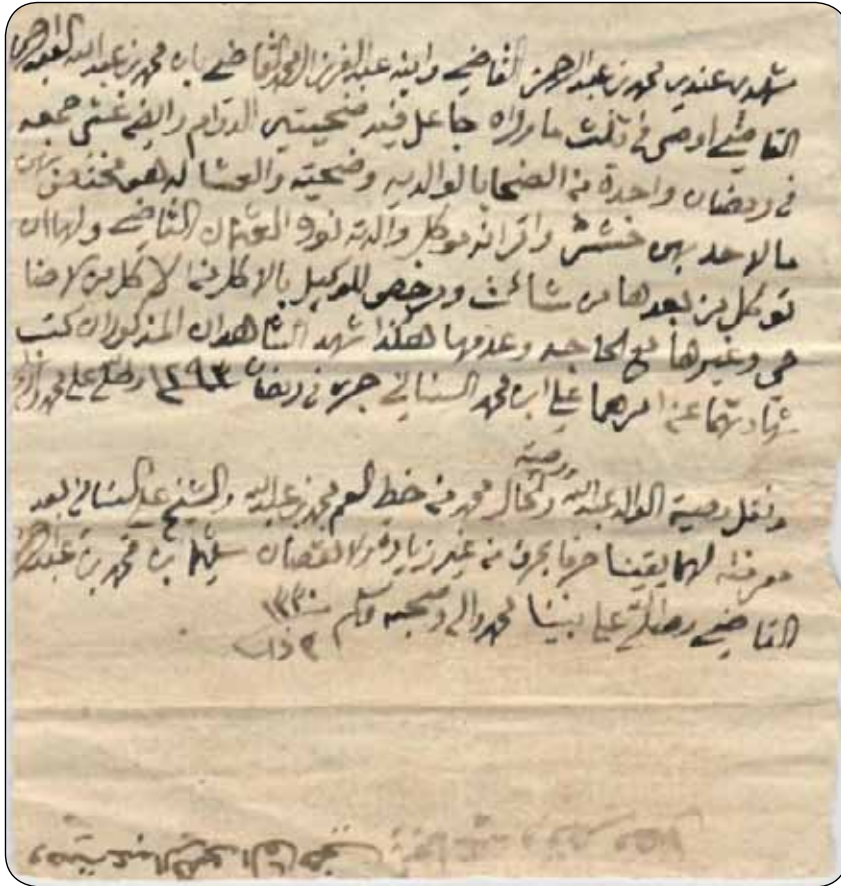 شهدى عندي محمد بن عبد الرحمن القاضي وابنه عبد العزيز المحمد القاضي بان محمد بن عبد الله العبد الرحمن
القاضي اوصى في ثلث ما وراه جاعل فيه ضحيتين الدوام وايضا عشى جمعه
في رمضان واحدة من الضحايا لوالديه وضحيته والعشا له هو مختص بهن
ما لاحد بهن خشش واقرانه موكل والدته نورة العثمان القاضي ولها ان
توكل من بعدها من شائت ومرخص للوكيل بالاكل منها الاكل من الاضا
حي وغيرها مع الحاجه وعدمها هكذا شهد الشاهدان المذكوران كتب
شهادتهما عن امرهما علي ابن محمد السناني جرى في رمضان ١٢٩٣ وصلى الله على محمد واله
ونقل وصية الوالد عبد الله ووصية الخال محمد من خط العم محمد بن عبد الله والشيخ علي السناني بعد
معرفته لهما يقينا حرفا بحرف من غير زيادة ولا نقصان بن محمد بن عبد الرحمن
القاضي وصلى الله على نبينا محمد واله وصحبه وسلم ١٣٣٠